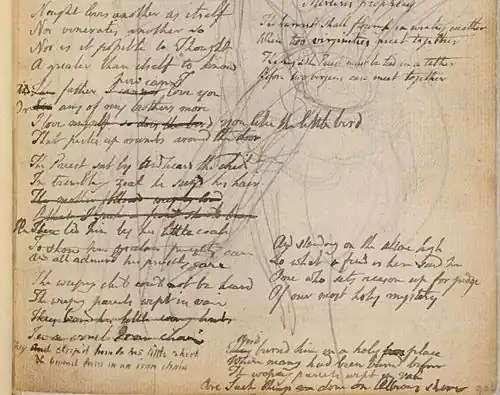 Nought loves another as itself
Nor venerates another so
Nor is it possible to Thought
A greater than itself to know
father how can I love you
Or any of my brothers more
I love myself so does the bird you like the little bird
That picks up crumbs around the door
The Priest sat by and heard the child
In trembling zeal he siezd his hair
The mother followd weeping loud
O that I such a fiend should bear
Then led him by his little coat
To show his zealous priestly care
And all admird his priestly care
The weeping child could not be heard
The weeping parents wept in vain
They bound his little ivory limbs
In a cruel Iron chain
They And stripd him to his little shirt
& bound him in an iron chain
Merlins prophecy
The harvest shall flourish in wintry weather
When two virginities meet together
The king & the priest must be tied in a tether
Before two virgins can meet together
And standing on the altar high
Lo what a fiend is here said he
One who sets reason up for judge
Of our most holy mystery
They burnd him in a holy place
Where many had been burnd before
The weeping parents wept in vain
Are Such things are done on Albions shore